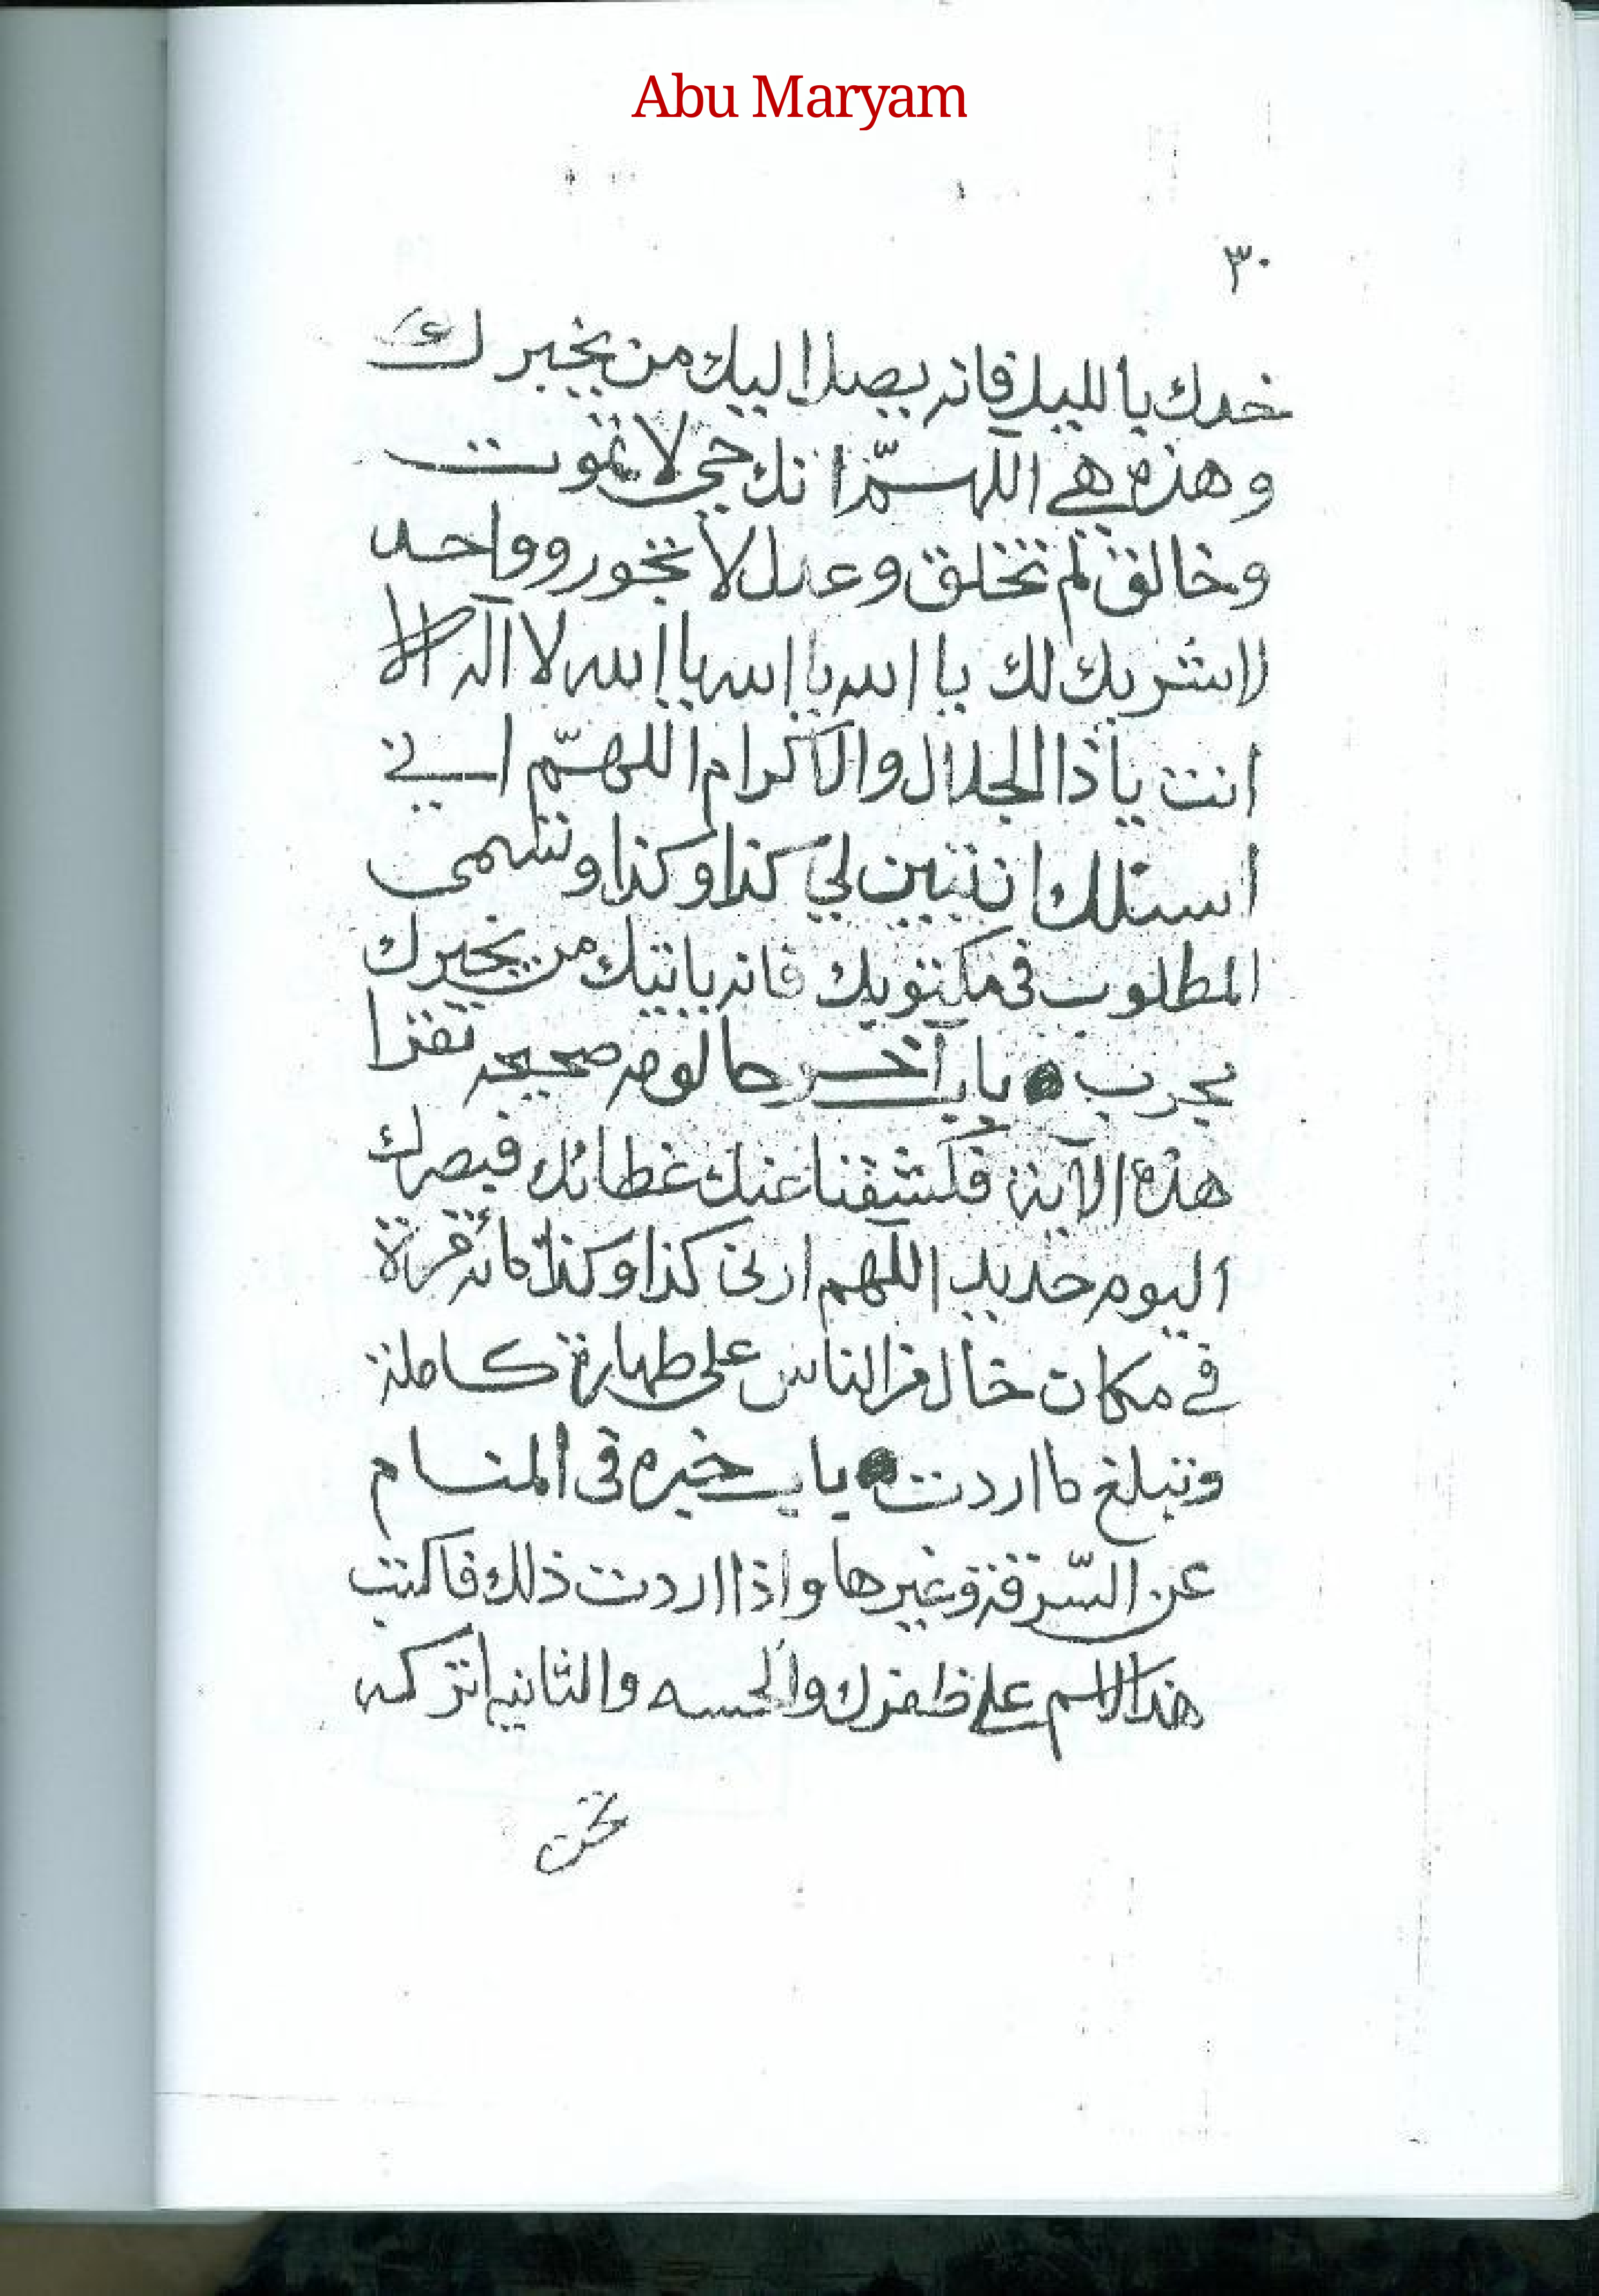 Abu Maryam
٣٠
خدك بالليل فانه يصل اليك من يخبرك
وهذه هي اللهمّ انك حي لا تموت
وخالق لم تخلق وعدل لا تجور وواحد
لا شريك لك يا الله يا الله يا الله لا اله الا
انت ياذا الجلال والاكرام اللهمّ اني
اسئلك ان تبين لي كذا وكذا وتسمى
المطلوب في مكتوبك فانه ياتيك من يخبرك
مجرب باب آخر حالومه صحيحه تقرا
هذه الآية فكشفنا عنك غطائك فبصرك
اليوم حديد اللهم ارنى كذا وكذا مائة مرة
في مكان خال من الناس على طهارة كاملة
وتبلغ ما اردت باب خيره في المنام
عن السّرقة وغيرها واذا اردت ذلك فاكتب
هذا الاسم على ظفرك والحسه والثانيه اتركه